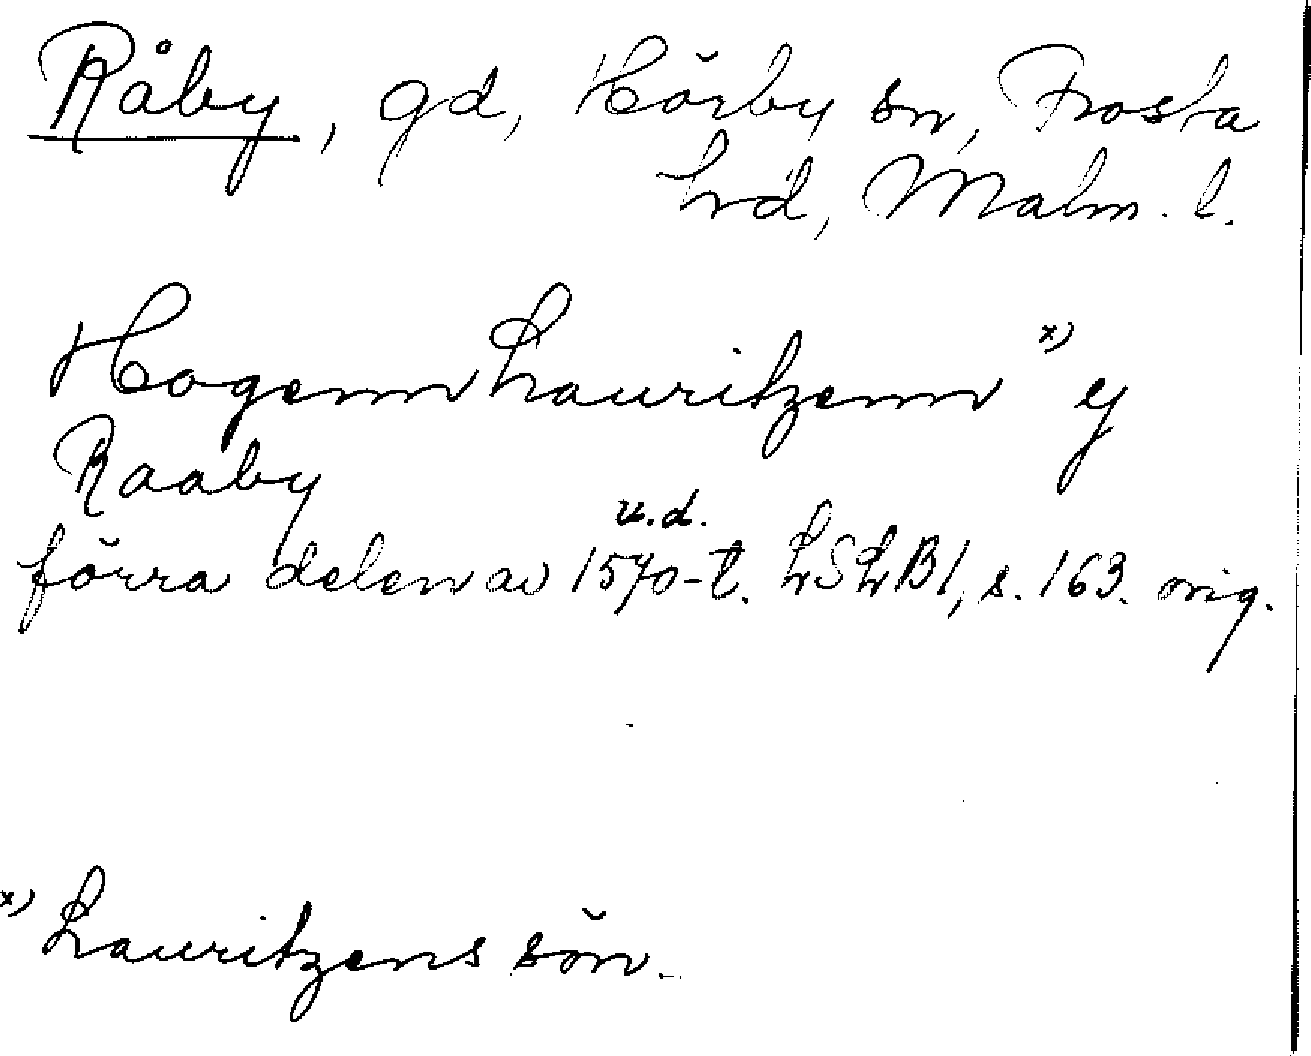 Råby, gd, Hörby sn, Frosta
hrd, Malm. l.
Hogenn Lauritzenn x) ej
Raaby
u.d.
förra delen av 1570-t. LSLB1, s. 163. orig.
x) Lauritzens sön.